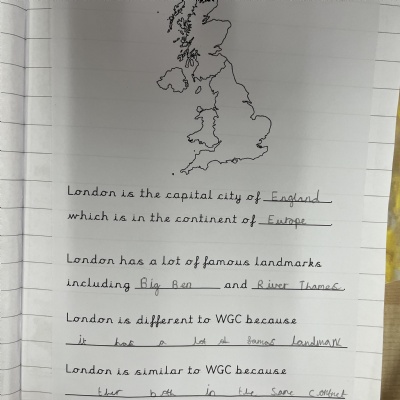 London is the capital city of England
which is in the continent of Europe.
London has a lot of famous landmarks
including Big Ben and River Thames.
London is different to WGC because
it has a lot landmark
London is similar to WGC because
in the same